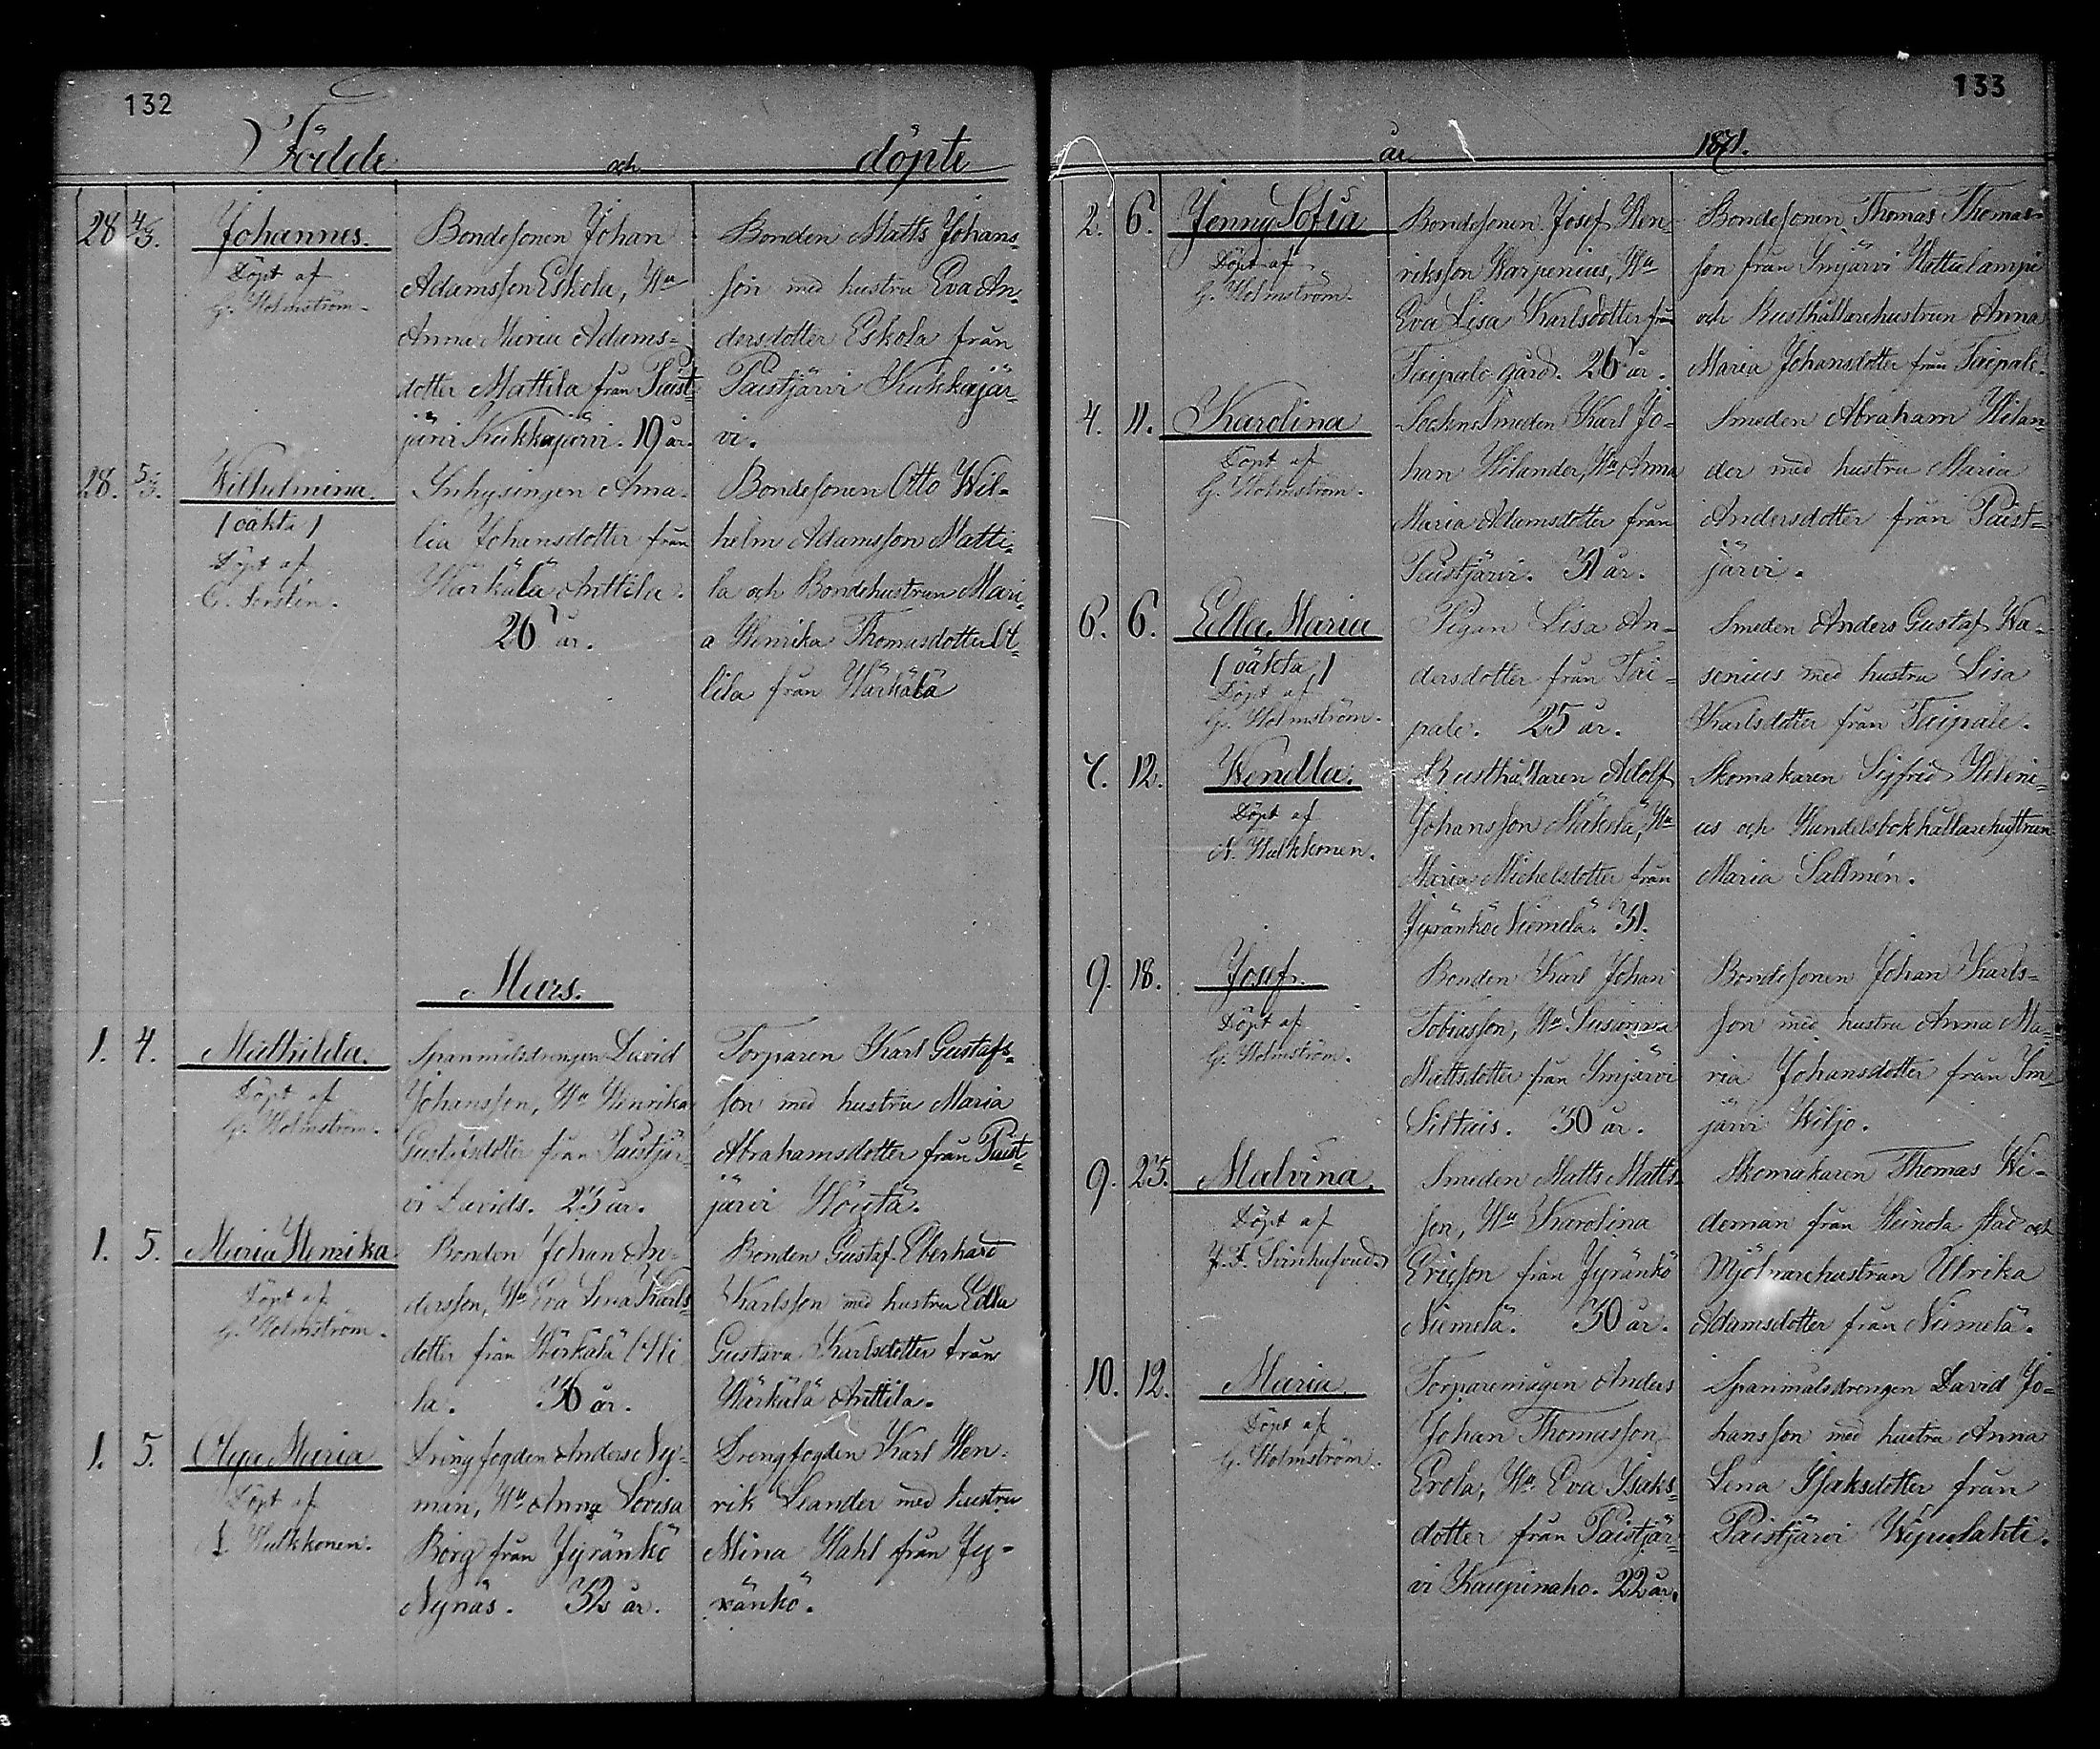 132
Födde och döpte
28 4/3. Johannes.
Döpt af
G. Holmström.
Bondesonen Johan
Adamsson Eskola, Hu
Anna Maria Adams=
dotter Mattila från Paist=
järvi Kukkajärvi. 19 år.
Bonden Matts Johans=
son med hustru Eva An=
dersdotter Eskola från
Paistjärvi Kukkajär=
vi.
28. 5/3. Wilhelmina.
/oäkta/
Döpt af
C. Forstén.
Inhysingen Ama=
lia Johansdotter från
Härkälä Anttila.
26 år.
Bondesonen Otto Wil=
helm Adamsson Matti=
la och Bondehustrun Mari=
a Henrika Thomasdotter Ut=
lila från Härkälä
Mars.
1. 4. Mathilda.
Döpt af
G. Holmström.
Spanmålsdrengen David
Johansson, Hu Henrika
Gustafsdotter från Paistjär=
vi Davids. 23 år.
Torparen Karl Gustafs=
son med hustru Maria
Abrahamsdotter från Paist=
järvi
1. 5. Maria Henrika
Döpt af
G. Holmström.
Bonden Johan An=
dersson, Hu Eva Lena Karls=
dotter från Härkälä
la. 36 år.
Bonden Gustaf Eberhard
Karlsson med hustru Edla
Gustava Karlsdotter från
Härkälä Anttila.
1. 5. Olga Maria
Döpt af
N. Hulkkonen.
Drengfogden Anders Ny=
man, Hu Anna Lovisa
Borg från Jyränkö
Nynäs. 32 år.
Drengfogden Karl Hen=
rik Leander med hustru
Mina Stahl från Jy=
ränkö.
133
år 1871.
2. 6. Jenny Sofia
Döpt af
G. Holmström.
Bondesonen Josef Hen=
riksson Karpenius, Hu
Eva Lisa Karlsdotter från
Taipale gård. 26 år.
Bondesonen Thomas Thomas=
son från Imjärvi Hattulampi
och Rusthållarehustrun Anna
Maria Johansdotter från Taipale.
4. 11. Karolina
Döpt af
G. Holmström.
Sockne Smeden Karl Jo=
han Hilander, Hu Anna
Maria Adamsdotter från
Paistjärvi. 31 år.
Smeden Abraham Hilan=
der med hustru Maria
Andersdotter från Paist=
järvi.
6. 6. Edla Maria
/oäkta/
Döpt af
G. Holmström.
Pigan Lisa An=
dersdotter från Tai=
pale. 25 år.
Smeden Anders Gustaf Wa=
senius med hustru Lisa
Karlsdotter från Taipale.
7. 12. Wendla.
Döpt af
N. Hulkkonen.
Rusthållaren Adolf
Johansson Mäkelä, Hu
Maria Michelsdotter från
Jyränkö Niemelä. 31.
Skomakaren Sigfrid Heleni=
us och Handelsbokhållarehustrun
Maria Sallmén.
9. 18. Josef.
Döpt af
G. Holmström.
Bonden Karl Johan
Tobiasson, Hu Susanna
Mattsdotter från Imjärvi
Siltais. 30 år.
Bondesonen Johan Karls=
son med hustru Anna Ma=
ria Johansdotter från Im=
järvi Wiljo.
9. 25. Malvina.
Döpt af
Smeden Matts Matts=
son, Hu Karolina
Ericson från Jyränkö
Niemelä. 30 år.
Skomakaren Thomas Wi=
deman från Heinola stad och
Mjölnarehustrun Ulrika
Adamsdotter från Niemelä.
10. 12. Maria
Döpt af
G. Holmström.
Torparemågen Anders
Johan Thomasson
Erola, Hu Eva Isaks=
dotter från Paistjär=
vi Kaupinaho. 22 år.
Spanmålsdrengen David Jo=
hansson med hustru Anna
Lena Isaksdotter från
Paistjärvi Wipulahti.